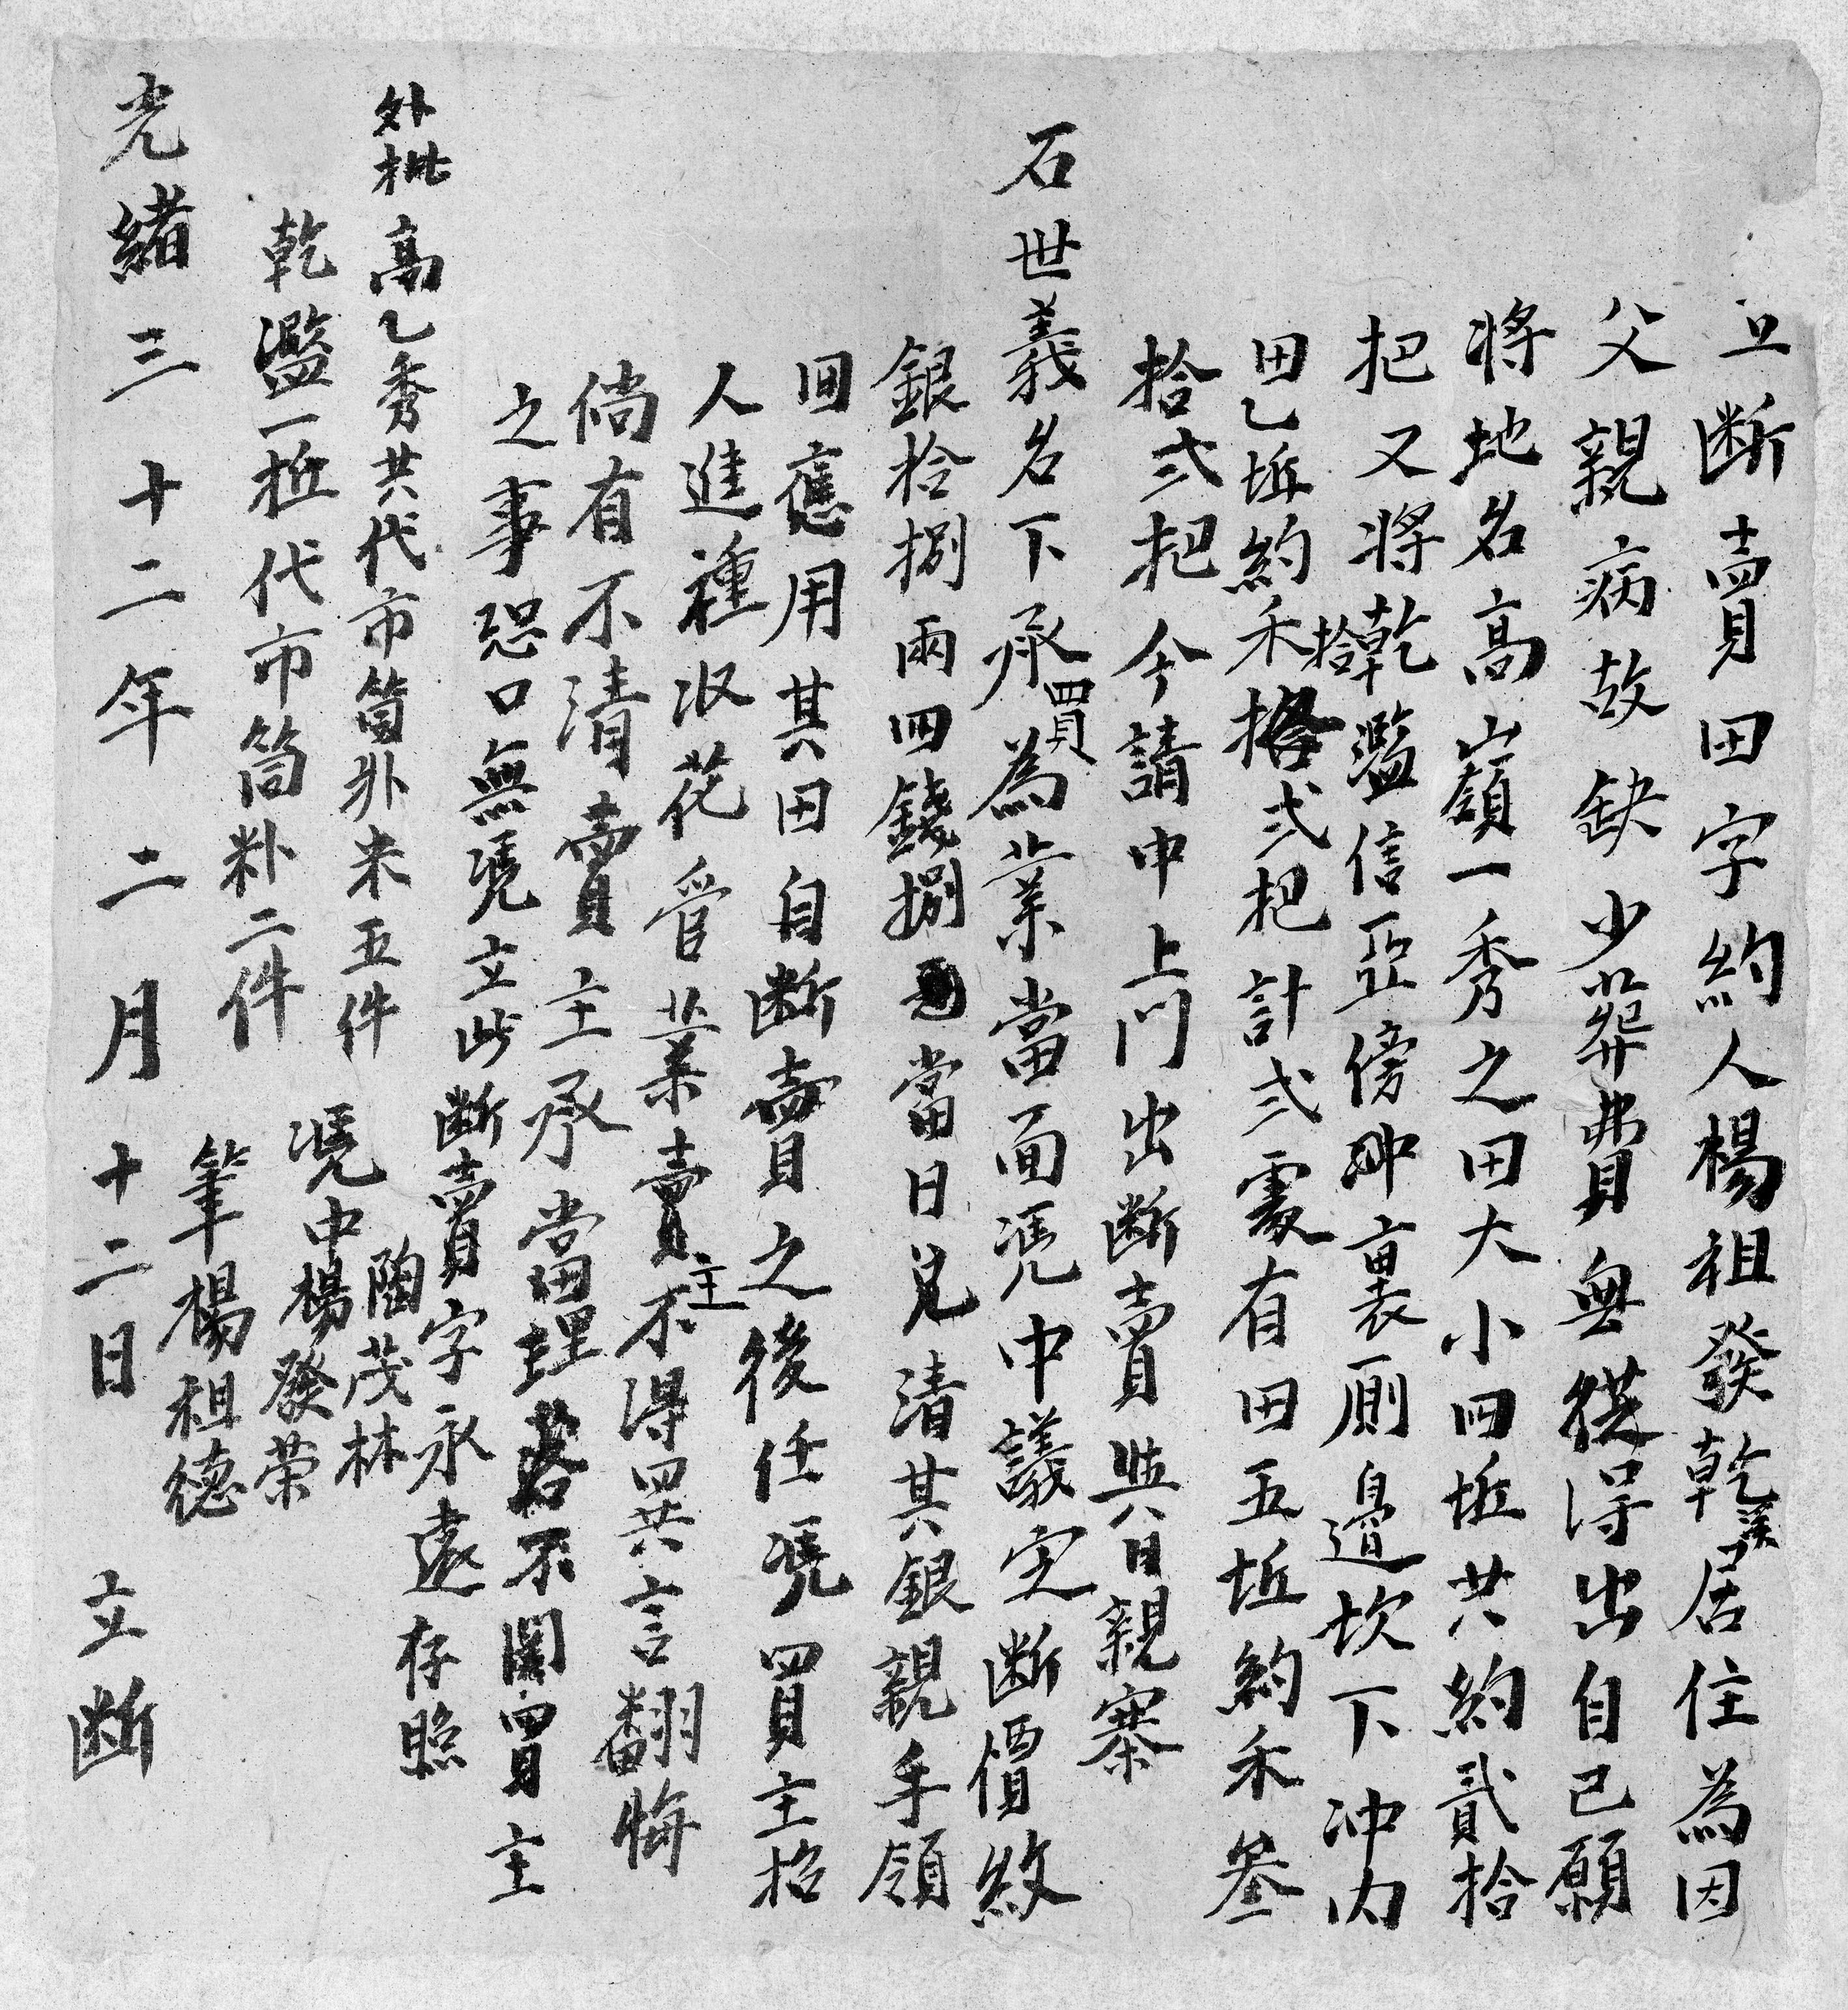 立断賣田字約人楊祖發乾溪居住為因
父親病故缺少葬費無從得出自己願
將地名高嶺一秀之田大小四坵共約貳拾
把又將乾濫信亞傍冲裏厠邊坎下冲内
田乙坵約禾拾弍把計弍處有田五坵約禾叁
拾弍把今請中上門出断賣與日親寨
石世義名下承買為業當面凴中議定断價紋
銀拾捌兩四錢捌當日兑清其銀親手領
回應用其田自断賣之後任凴買主招
人進種收花管業賣主不得異言翻悔
倘有不清賣主承當理落不関買主
之事恐口無凴立此断賣字永遠存照
外批高乙秀共代市筒外米五件
乾濫一坵代市筒料二件
凴中楊發荣
陶茂林
筆楊祖德
光緒三十二年二月十二日立断